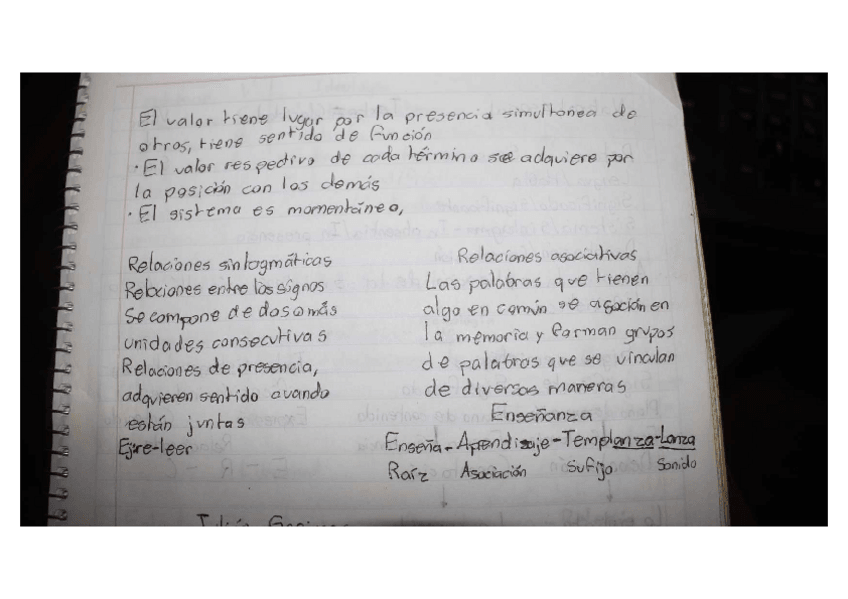 El valor tiene lugar por la presencia simultánea de
otros, tiene sentido de función
· El valor respectivo de cada término se adquiere por
la posición con los demás
· El sistema es momentáneo,
Relaciones sintagmáticas
Relaciones entre los signos
Se compone de dos o más
unidades consecutivas
Relaciones de presencia,
adquieren sentido cuando
están juntas
Ej:re-leer
Relaciones asociativas
Las palabras que tienen
algo en común se asocian en
la memoria y forman grupos
de palabras que se vinculan
de diversas maneras
Enseñanza
Enseña-Apendizaje-Templanza-Lanza
Raíz Asociación Sufijo Sonido